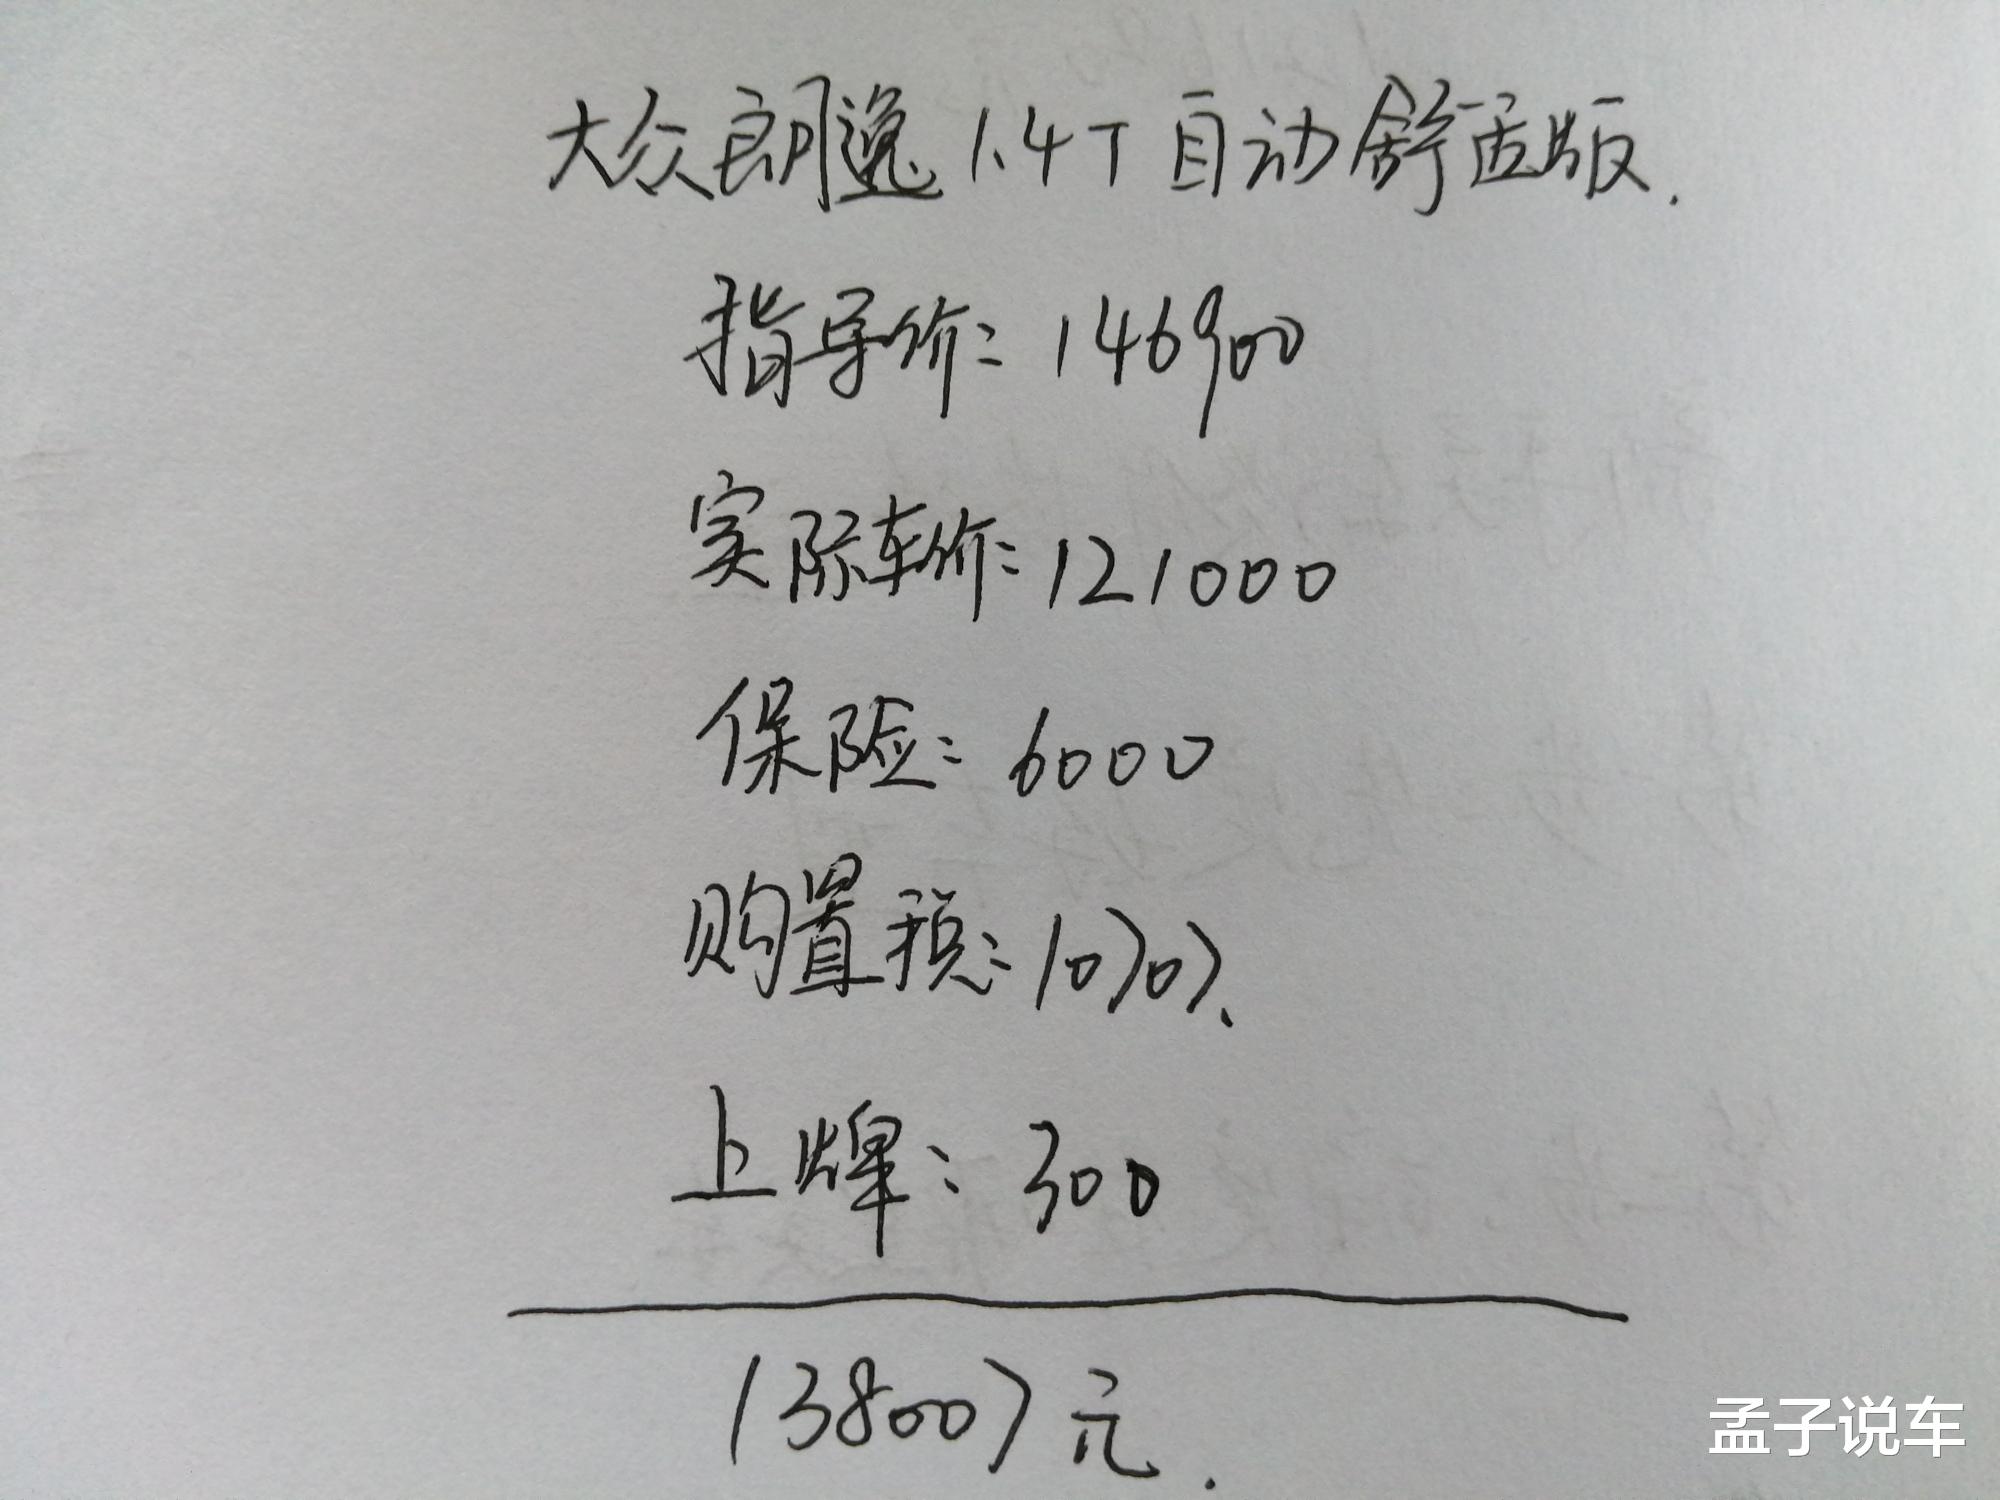 大众朗逸1.4T自动舒适版.
指导价:146900
实际车价:121000
保险:6000
购置税:10707.
上牌:300
138007元.
孟子说车